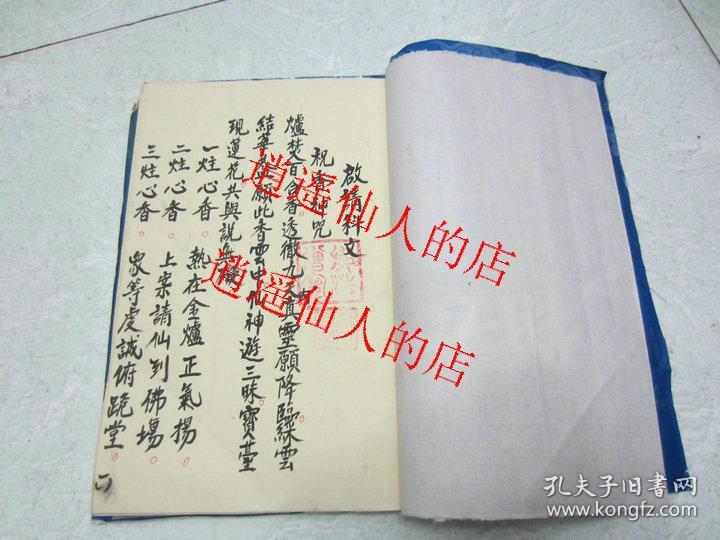 啟請科文
祝香神咒
爐焚百合香透徹九天真靈願降臨彩雲
結華蓋願此香雲中化神遊三昧寶臺
現蓮花共與說無
一炷心香。熱在金爐正氣揚。
二炷心香。上案請仙到佛場。
三炷心香。眾等虔誠俯跪堂。
逍遥仙人的店
逍遥仙人的店
孔夫子旧书网
www.kongfz.com